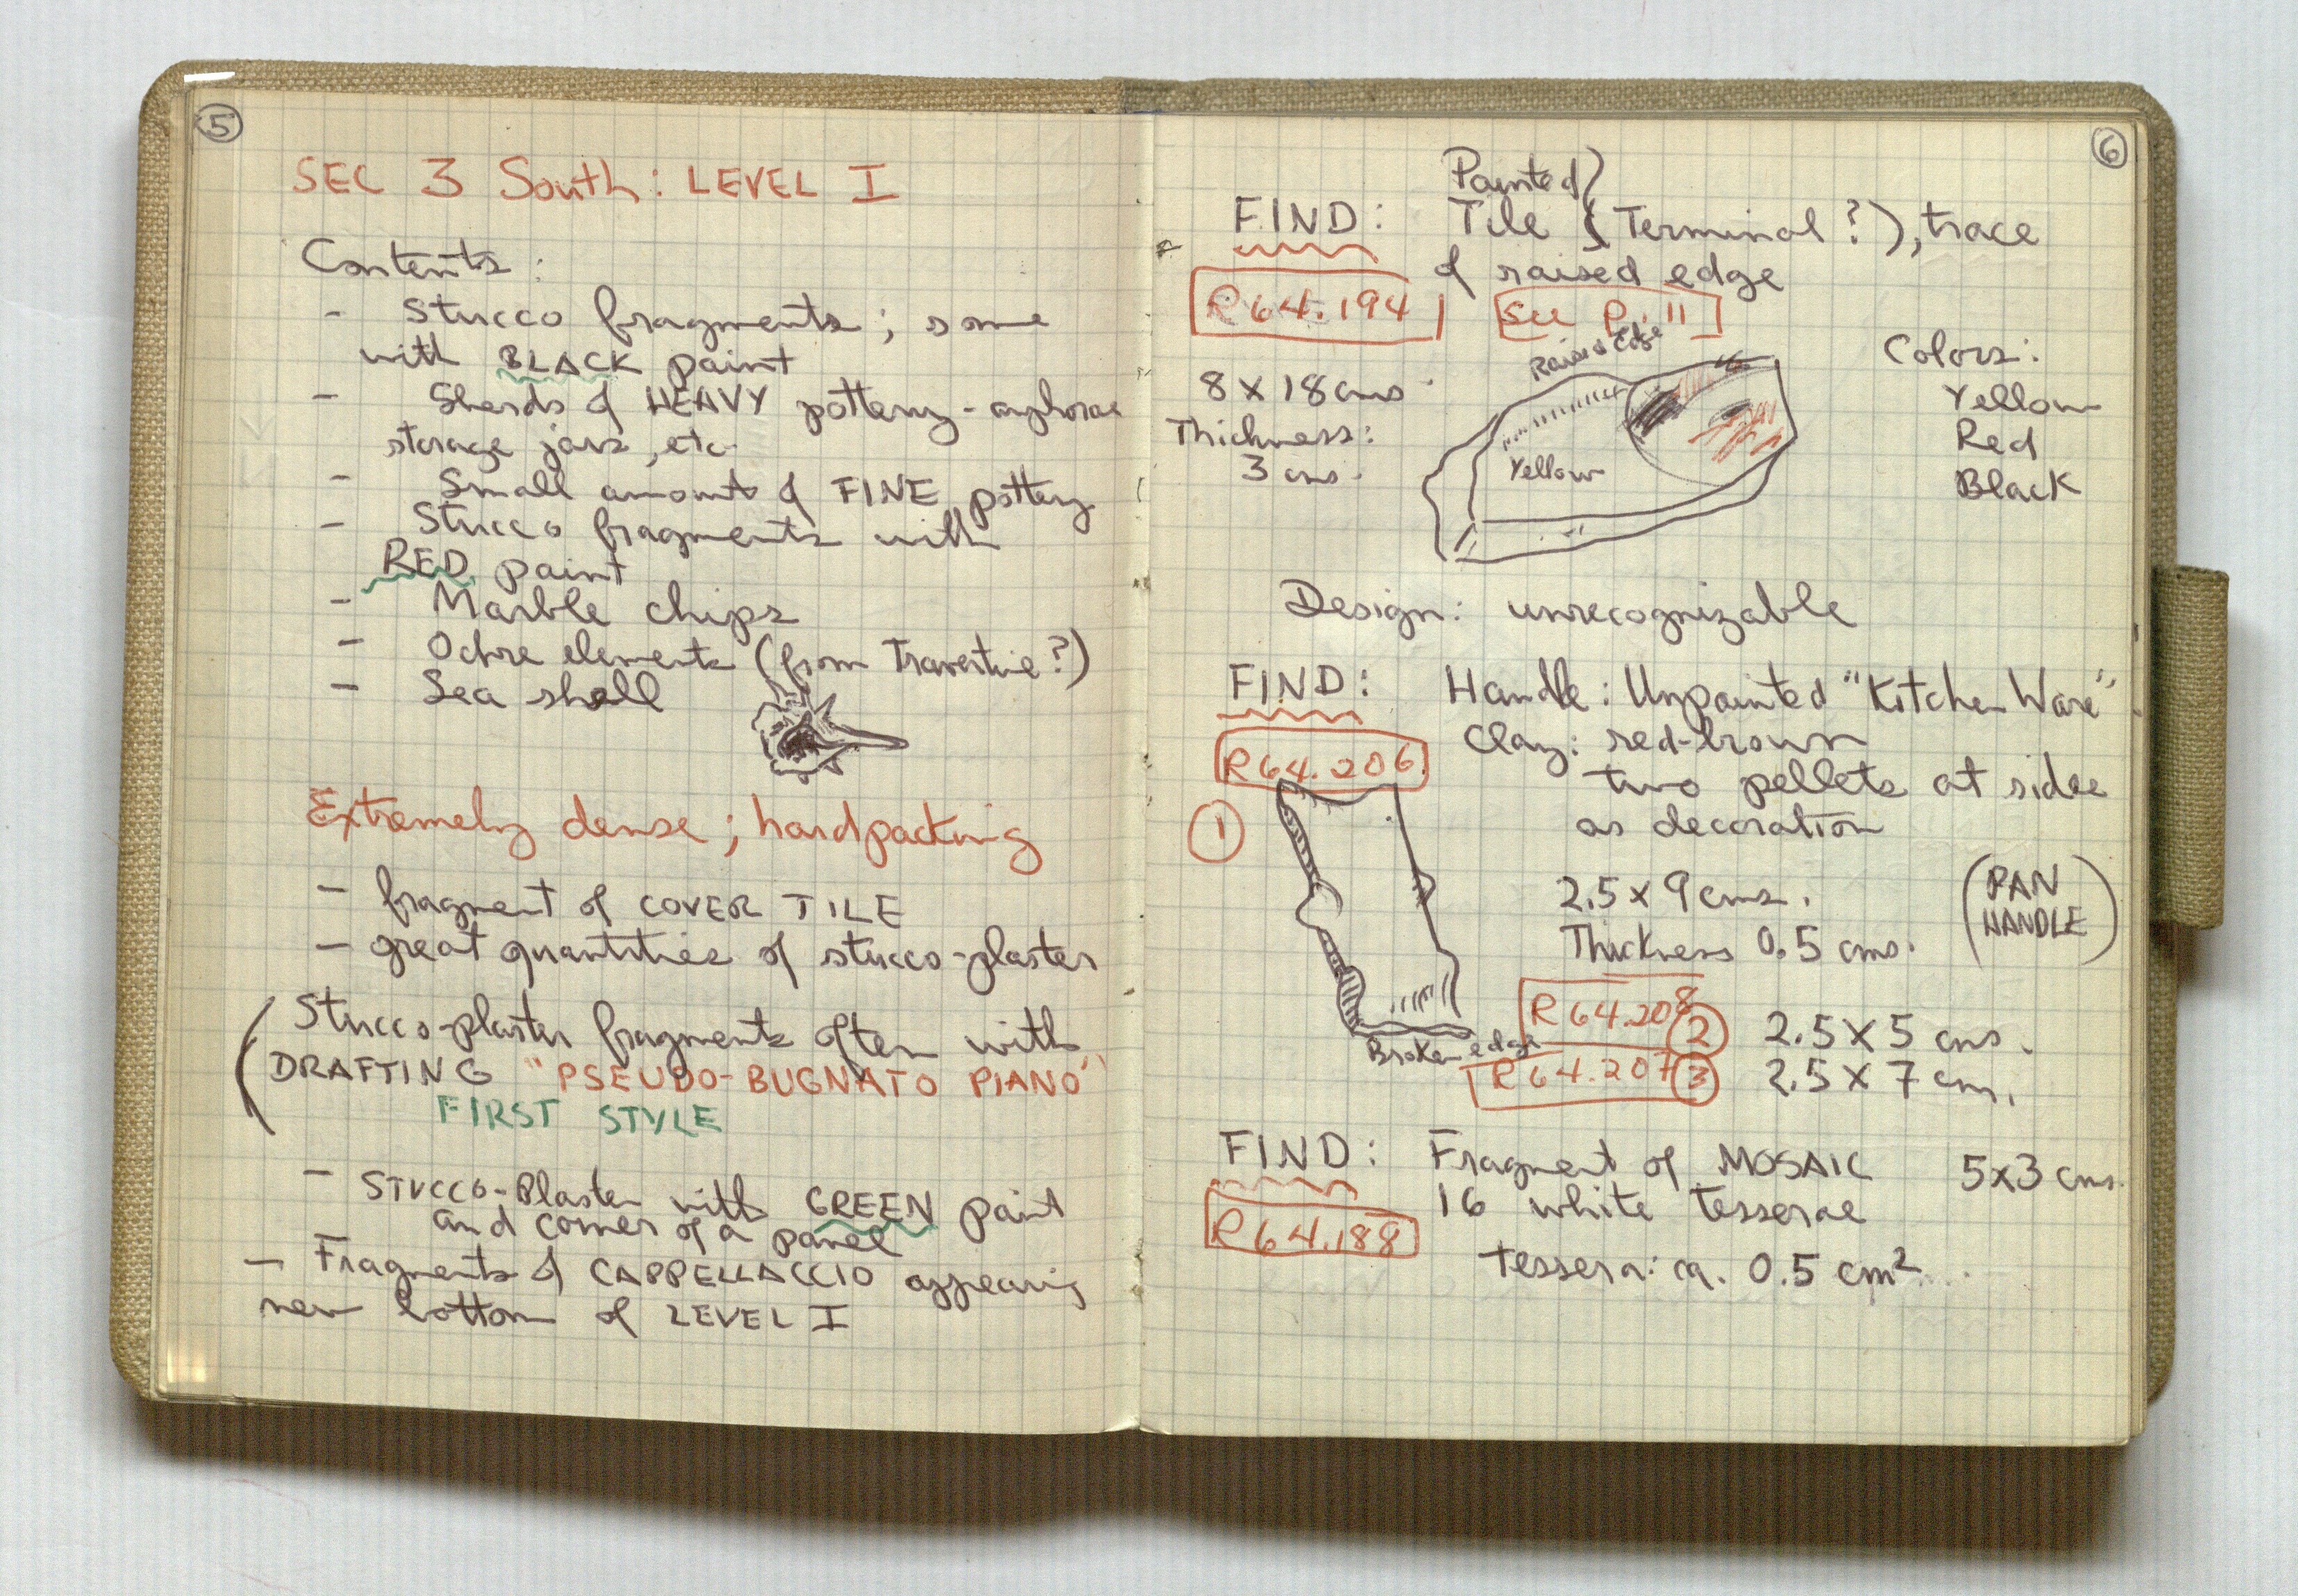 5
SEC 3 South: LEVEL I
Contents:
- Stucco fragments; some
with BLACK paint
- Sherds of HEAVY pottery - amphorae
storage jars, etc.
- Small amount of FINE pottery
- Stucco fragments with
RED paint
- Marble chips
- Ochre elements (from Travertine?)
- Sea shell
Extremely dense; hardpacking
- fragment of COVER TILE
- great quantities of stucco-plaster
(Stucco-plaster fragments often with
DRAFTING "PSEUDO-BUGNATO PIANO"
FIRST STYLE
- STUCCO-Plaster with GREEN paint
and corner of a panel
- Fragments of CAPPELLACCIO appearing
near bottom of LEVEL I
6
Painted)
FIND: Tile (Terminal?), trace
of raised edge
R64.194 See P. 11
Raised Edge
8 x 18 cms
Thickness:
3 cms.
Yellow
Colors:
Yellow
Red
Black
Design: unrecognizable
FIND: Handle: Unpainted "Kitchen Ware"
R64.206
Clay: red-brown
two pellets at sides
as decoration
1
2.5 x 9 cms.
Thickness 0.5 cms.
(PAN
HANDLE)
Broken edge
R64.208 2 2.5 x 5 cms.
R64.207 3 2.5 x 7 cm.
FIND: Fragment of MOSAIC 5x3 cms.
R64.188
16 white tesserae
tessera: ca. 0.5 cm²